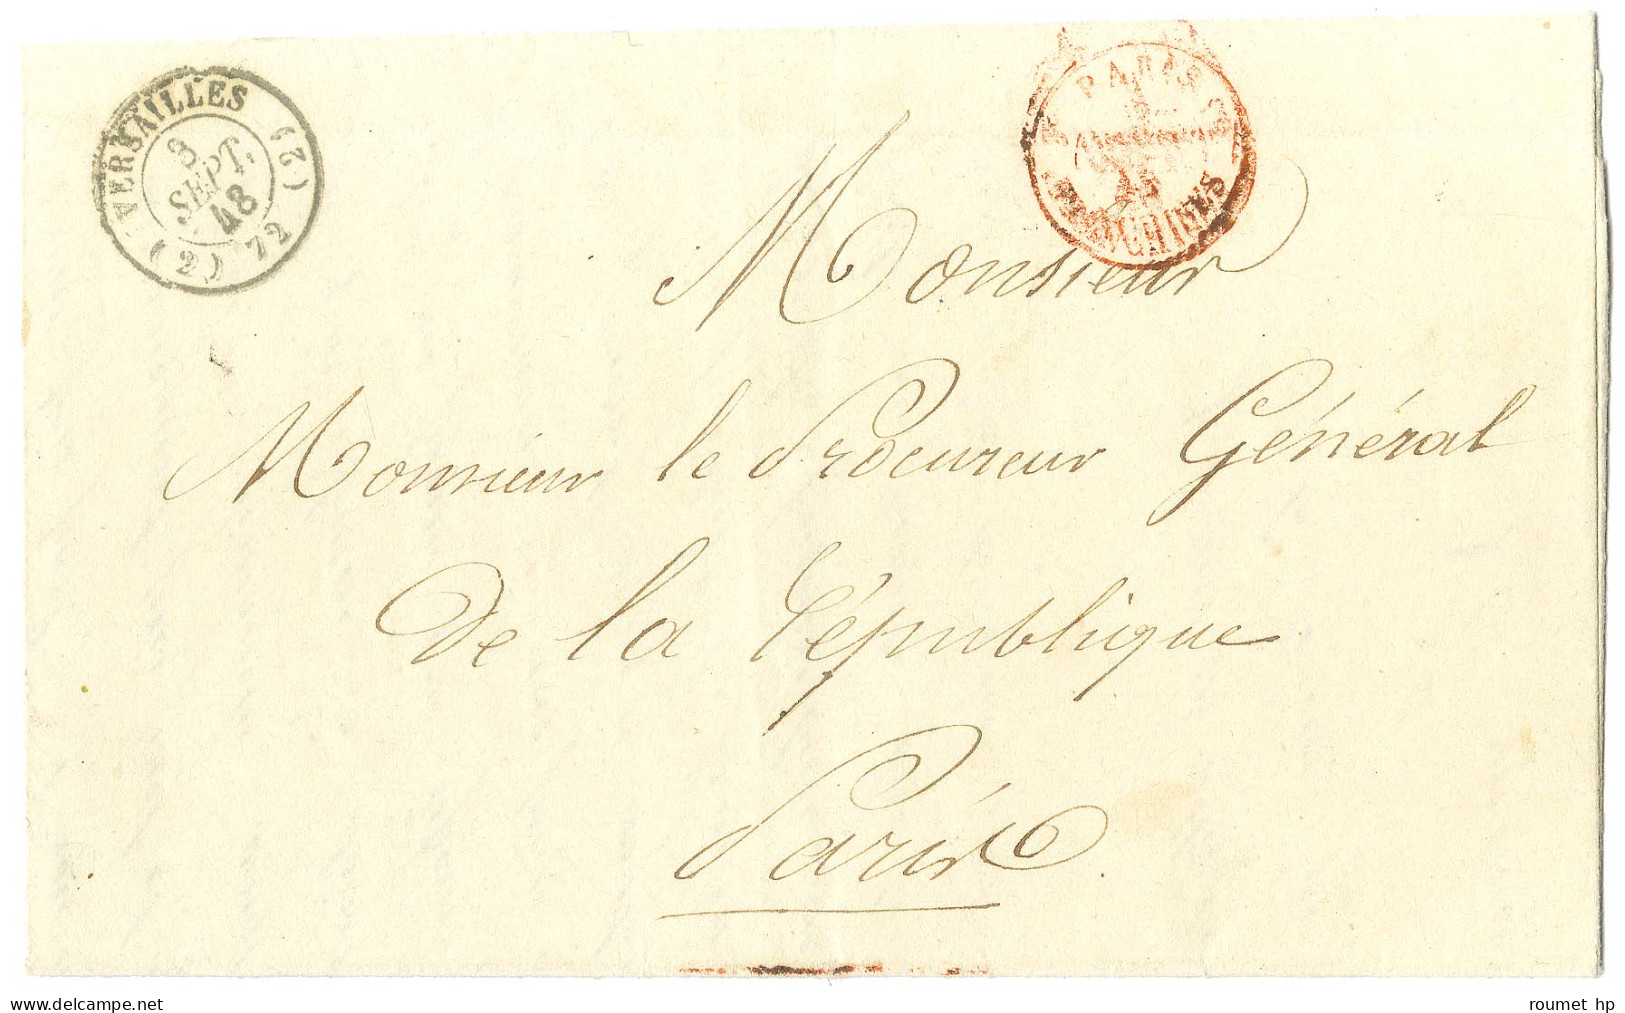 VERSAILLES (2) 72 (2e)
3
SEPT.
48
PARIS
48
Monsieur
Monsieur le Procureur Général
De la République
Paris.
roumet hp
www.delcampe.net